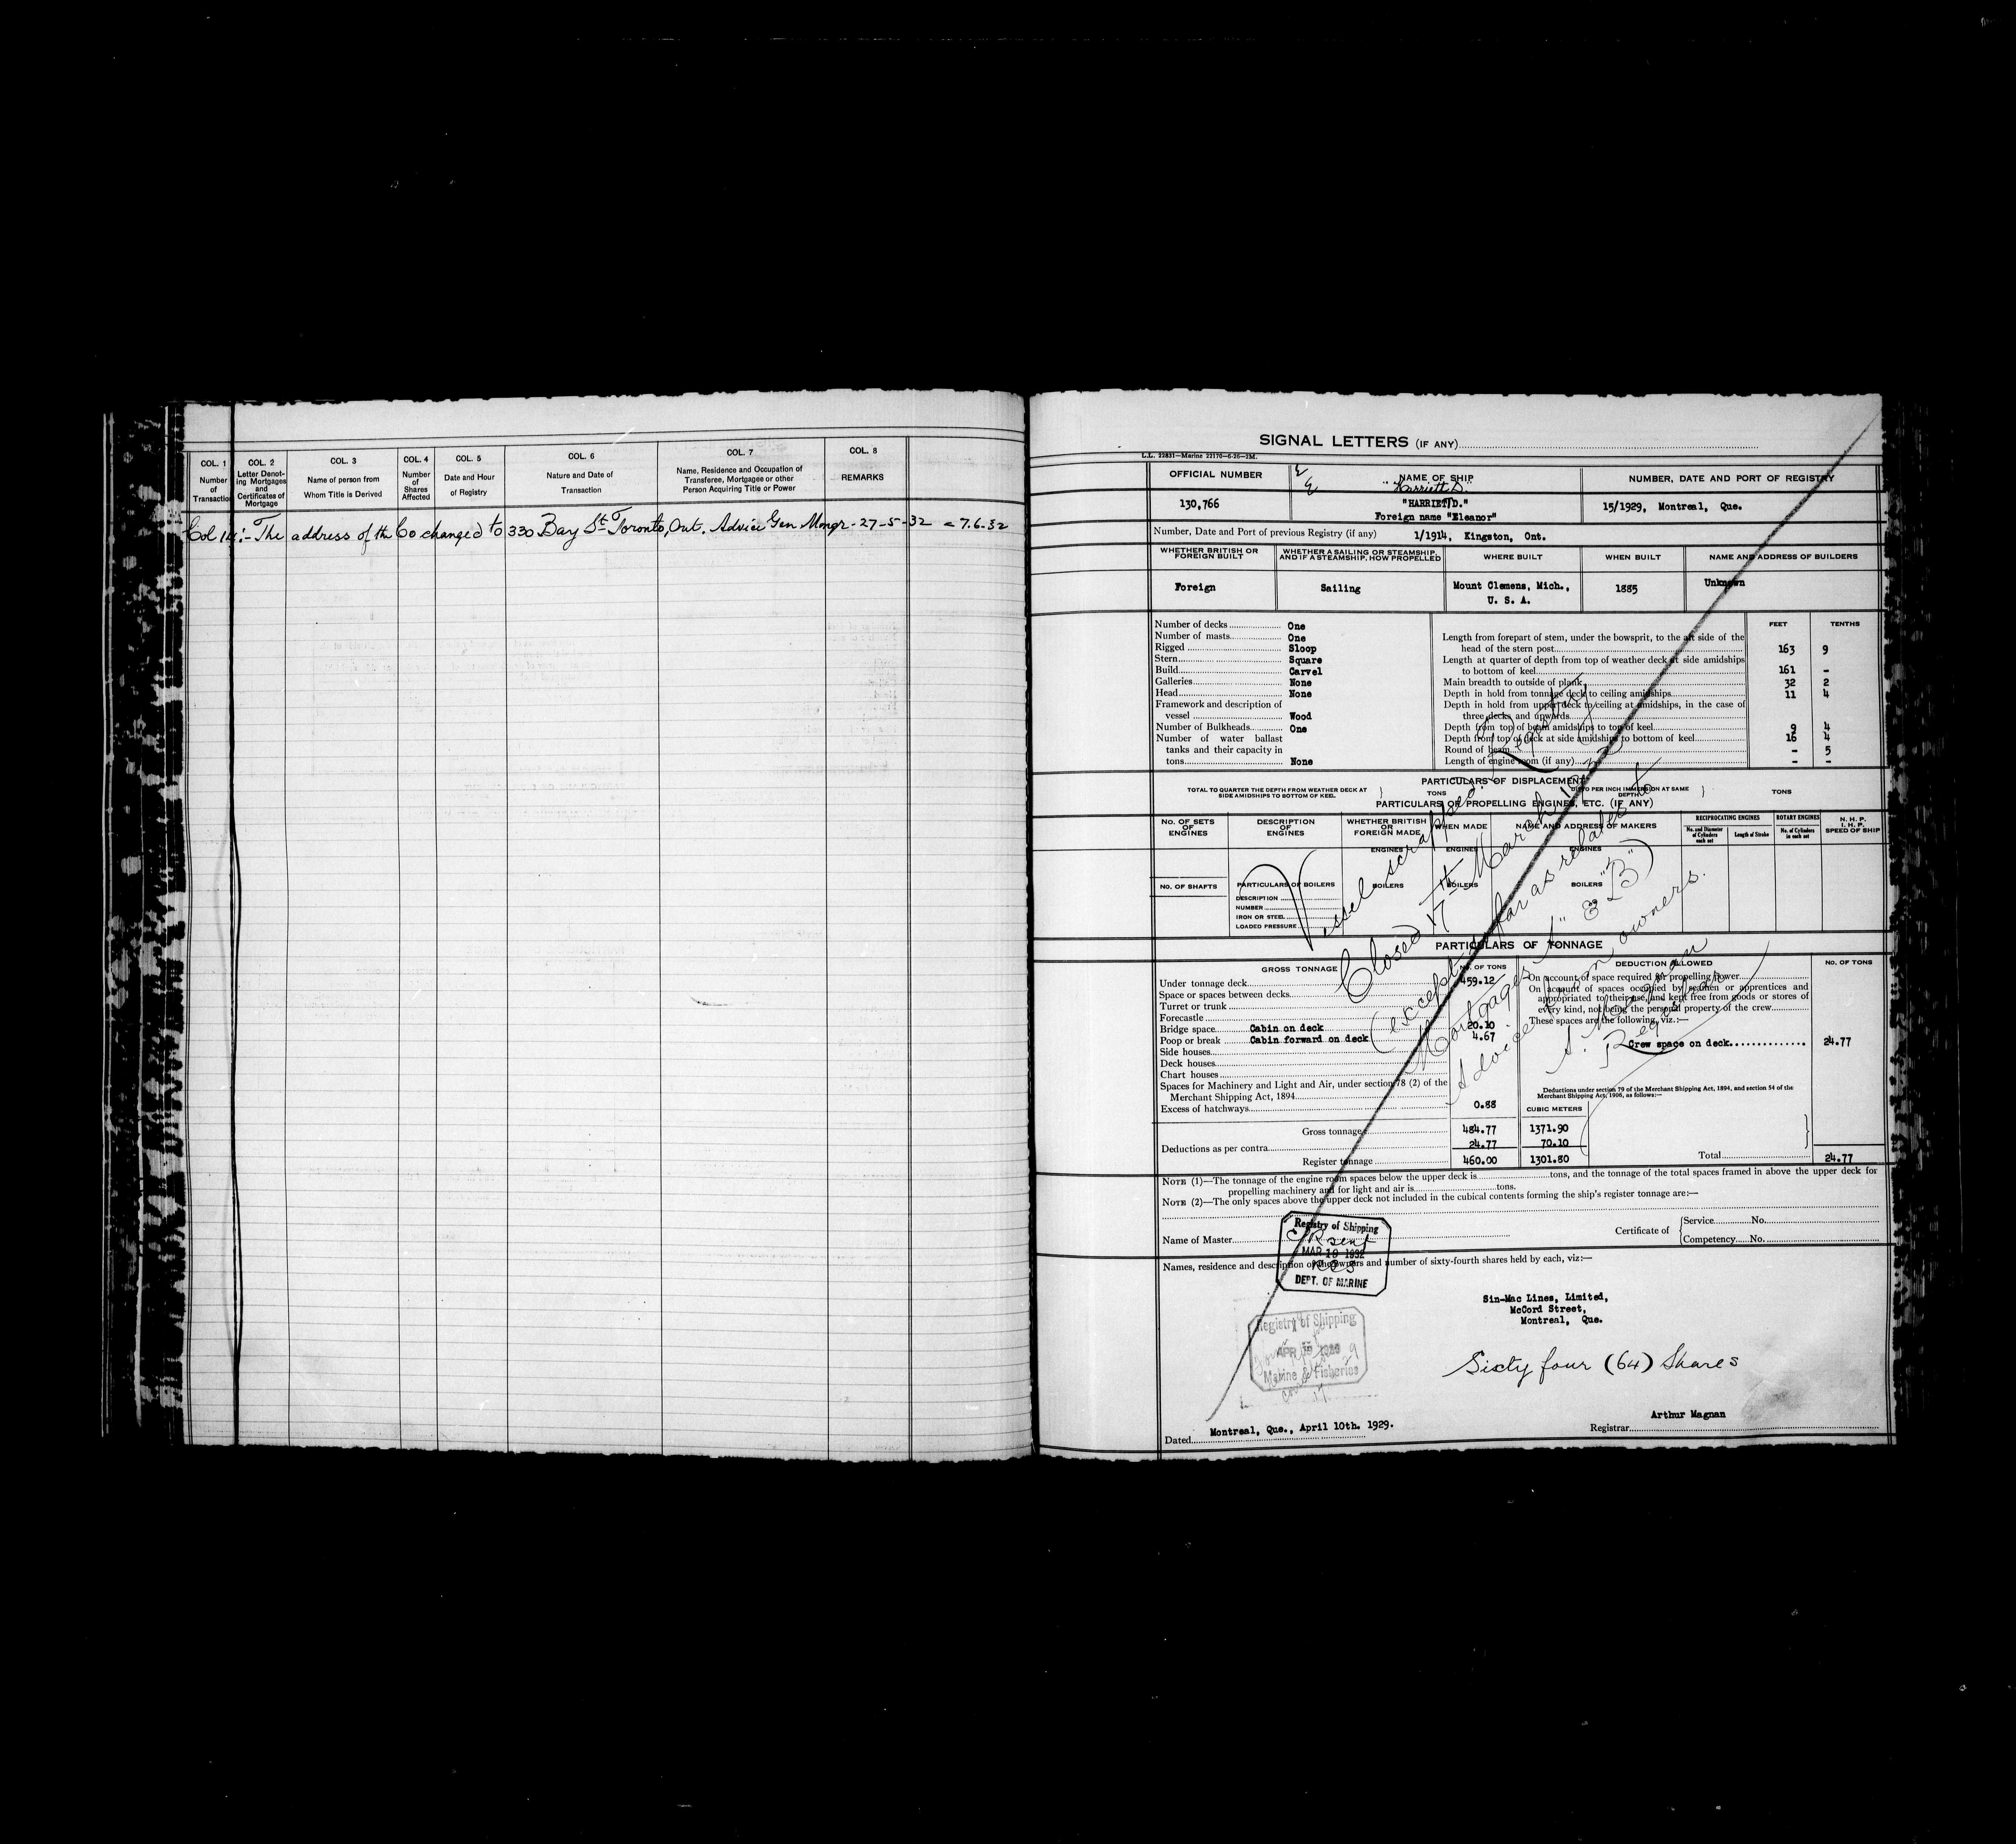 COL. 1
Number of Transaction
COL. 2
Letter Denoting Mortgages and Certificates of Mortgage
COL. 3
Name of person from Whom Title is Derived
COL. 4
Number of Shares Affected
COL. 5
Date and Hour of Registry
COL. 6
Nature and Date of Transaction
COL. 7
Name, Residence and Occupation of Transferee, Mortgagee or other Person Acquiring Title or Power
COL. 8
REMARKS
Col 14:- The address of the Co changed to 330 Bay St Toronto, Ont. Advice Gen Mangr - 27-5-32 = 7.6-32
SIGNAL LETTERS (IF ANY)
L.L. 22831—Marine 22170—6-26—2M.
OFFICIAL NUMBER
NAME OF SHIP
NUMBER, DATE AND PORT OF REGISTRY
"Harriett D."
130,766
"HARRIET D."
Foreign name "Eleanor"
15/1929, Montreal, Que.
Number, Date and Port of previous Registry (if any) 1/1914, Kingston, Ont.
WHETHER BRITISH OR FOREIGN BUILT
WHETHER A SAILING OR STEAMSHIP, AND IF A STEAMSHIP, HOW PROPELLED
WHERE BUILT
WHEN BUILT
NAME AND ADDRESS OF BUILDERS
Foreign
Sailing
Mount Clemens, Mich.,
U. S. A.
1885
Unknown
FEET TENTHS
Number of decks One
Number of masts One
Rigged Sloop
Stern Square
Build Carvel
Galleries None
Head None
Framework and description of
vessel Wood
Number of Bulkheads One
Number of water ballast
tanks and their capacity in
tons None
Length from forepart of stem, under the bowsprit, to the aft side of the
head of the stern post 163 9
Length at quarter of depth from top of weather deck at side amidships
to bottom of keel 161 -
Main breadth to outside of plank 32 2
Depth in hold from tonnage deck to ceiling amidships 11 4
Depth in hold from upper deck to ceiling at amidships, in the case of
three decks and upwards
Depth from top of beam amidships to top of keel 9 4
Depth from top of deck at side amidships to bottom of keel 16 4
Round of beam - 5
Length of engine room (if any) - -
PARTICULARS OF DISPLACEMENT
TOTAL TO QUARTER THE DEPTH FROM WEATHER DECK AT SIDE AMIDSHIPS TO BOTTOM OF KEEL
TONS
DITTO PER INCH IMMERSION AT SAME DEPTH
TONS
PARTICULARS OF PROPELLING ENGINES, ETC. (IF ANY)
No. OF SETS OF ENGINES
DESCRIPTION OF ENGINES
WHETHER BRITISH OR FOREIGN MADE
WHEN MADE
NAME AND ADDRESS OF MAKERS
RECIPROCATING ENGINES
No. and Diameter of Cylinders each set
Length of Stroke
ROTARY ENGINES
No. of Cylinders in each set
N. H. P.
I. H. P.
SPEED OF SHIP
ENGINES
ENGINES
ENGINES
No. OF SHAFTS
PARTICULARS OF BOILERS
BOILERS
BOILERS
BOILERS
DESCRIPTION
NUMBER
IRON OR STEEL
LOADED PRESSURE
Vessel scrapped. Registry
Closed 17th March 1932
(except so far as relates to
Mortgages "A" & "B")
Advice from owners.
A. Magnan
Registrar
PARTICULARS OF TONNAGE
GROSS TONNAGE
No. OF TONS
DEDUCTION ALLOWED
No. OF TONS
Under tonnage deck 459.12
Space or spaces between decks
Turret or trunk
Forecastle
Bridge space Cabin on deck 20.10
Poop or break Cabin forward on deck 4.67
Side houses
Deck houses
Chart houses
Spaces for Machinery and Light and Air, under section 78 (2) of the
Merchant Shipping Act, 1894
Excess of hatchways 0.88
CUBIC METERS
Gross tonnage 484.77 1371.90
Deductions as per contra 24.77 70.10
Register tonnage 460.00 1301.80
On account of space required for propelling power
On account of spaces occupied by seamen or apprentices and
appropriated to their use, and kept free from goods or stores of
every kind, not being the personal property of the crew
These spaces are the following, viz.:—
Crew space on deck 24.77
Deductions under section 79 of the Merchant Shipping Act, 1894, and section 54 of the
Merchant Shipping Act, 1906, as follows:—
Total 24.77
NOTE (1)—The tonnage of the engine room spaces below the upper deck is tons, and the tonnage of the total spaces framed in above the upper deck for
propelling machinery and for light and air is tons.
NOTE (2)—The only spaces above the upper deck not included in the cubical contents forming the ship's register tonnage are:—
Name of Master
Certificate of
Service No.
Competency No.
Registry of Shipping
MAR 19 1932
DEPT. OF MARINE
Names, residence and description of the owners and number of sixty-fourth shares held by each, viz:—
Sin-Mac Lines, Limited,
McCord Street,
Montreal, Que.
Registry of Shipping
Marine & Fisheries
Sixty four (64) Shares
Dated Montreal, Que., April 10th. 1929.
Arthur Magnan
Registrar